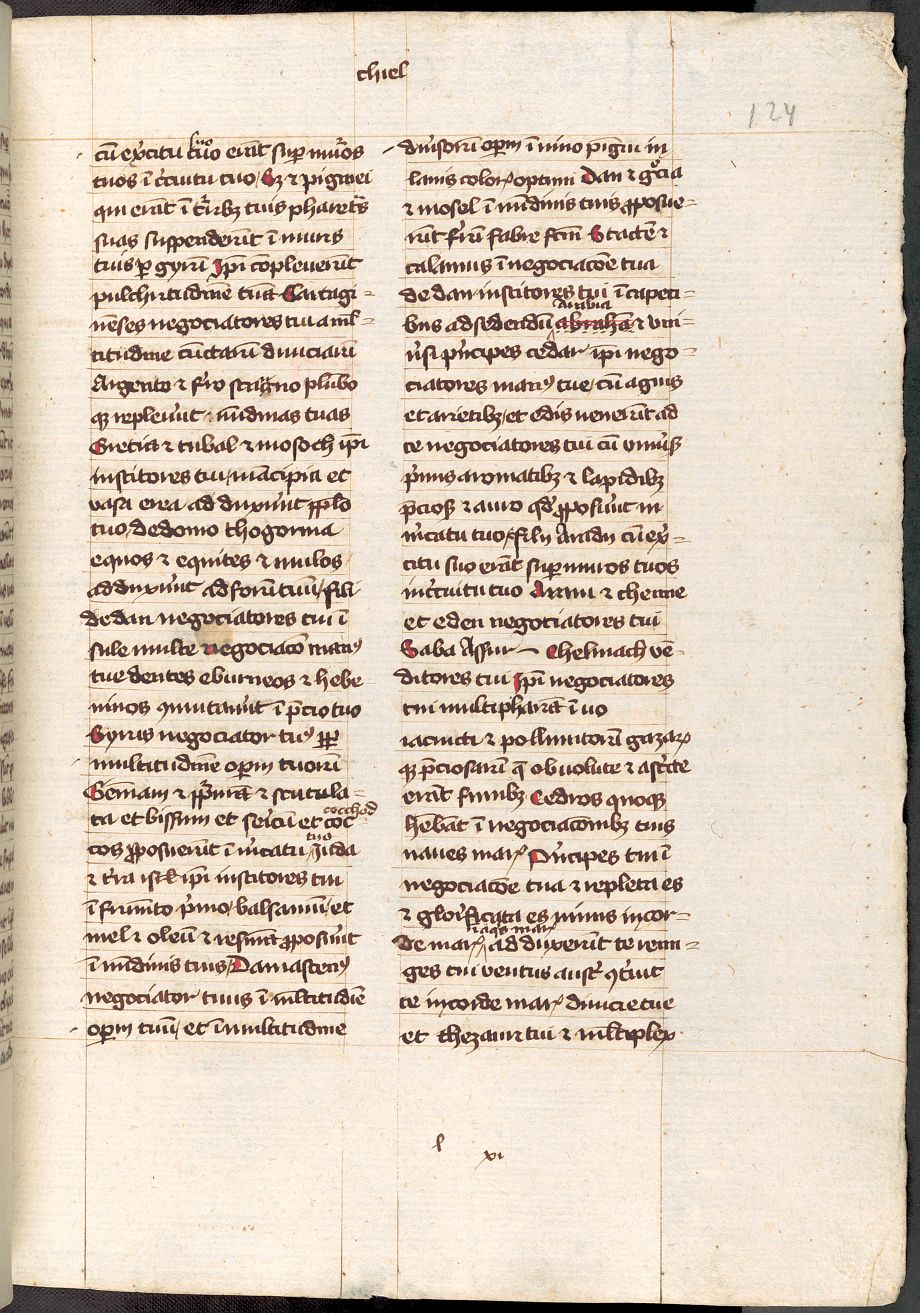 chiel
124
cū ex̄citu tuo erāt sup̄ muros
tuos ī c̄cuitu tuo / Sꝫ ⁊ pigmei
qui erāt ī t̄rbꝫ tuis pharetͣs
suas suspenderūt ī muris
tuis ꝑ gyrū Ip̄i cōpleuerūt
pulchritudinē tuā Cartagi-
nēses negociatores tui a ml̄-
titudine cūctarū diuiciarū
Argento ⁊ fͤro stagno plūbo
qꝫ repleuͬūt nūdinas tuas
Grecia ⁊ tubal ⁊ mosoch ip̄i
institores tui / mācipia et
vasa erea adduxͬūt pp̄lo
tuo / de domo thogorma
equos ⁊ equites ⁊ mulos
adduxͬūt ad forū tuū / fili
dedan negociatores tui ī
sule multe negociacō manꝰ
tue dentes eburneos ⁊ hebe
ninos ꝯmutauͬūt ī p̄cio tuo
Syrus negociator tuꝰ ꝓpͬ
multitudinē operm tuorū
Gemām ⁊ pp̄urā ⁊ scutula-
ta et bissum et sericū et coc cocchod
cos ꝓposuerūt ī mͬcatu tuo Iuda
⁊ tͬra isrl̄ ip̄i institores tui
ī frumͤto pͥmo / balsamū / et
mel ⁊ oleū ⁊ resinā ꝓposuͬūt
ī nūdinis tuis / Damascenꝰ
negociator tuus ī ml̄titudīe
operm tuū / et ī multitudine
diuͬsorū operm ī vino pīgui in
lanis colorꝝ optimi Dan ⁊ gͦcia
⁊ mosel ī nūdinis tuis ꝓposue-
rūt fͬrū fabre fctm̄ Stacte ⁊
calamus ī negociacōe tua
dedan institores tui ī tapeti-
bus ad sedendū abrahā Arabia ⁊ vni-
uͬsi pͥncipes cedar ip̄i nego-
ciatores manꝰ tue / cū agnis
et arietibꝫ et edis venerūt ad
te negociatores tui cū vniuͬs̄
pͥmis aromatibꝫ ⁊ lapidibꝫ
p̄cios̄ ⁊ auro qd̄ ꝓposuͬūt in
mͬcatu tuo / filij Aradij cū ex̄-
citu suo erāt sup̄ muros tuos
in c̄cuitu tuo Aram ⁊ chenne
et eden negociatores tui
Saba Assur Chelmach vē-
ditores tui Ip̄i negociatores
tui multipharā ī uo
iacincti ⁊ pollimitorū gazarꝝ
qꝫ p̄ciosarū q̄ obuolute ⁊ astͥcte
erāt funibꝫ Cedros quoqꝫ
hēbāt ī negociacōnibꝫ tuis
naues marꝭ Pͥncipes tui ī
negociacōe tua ⁊ repleta es
⁊ glorificata es nimis in cor-
de marꝭ ī aqͥs marꝭ adduxerūt te remi-
ges tui ventus austͬ ꝯtͥuit
te in corde marꝭ diuicie tue
et thezauri tui ⁊ ml̄tiplex
l
xi